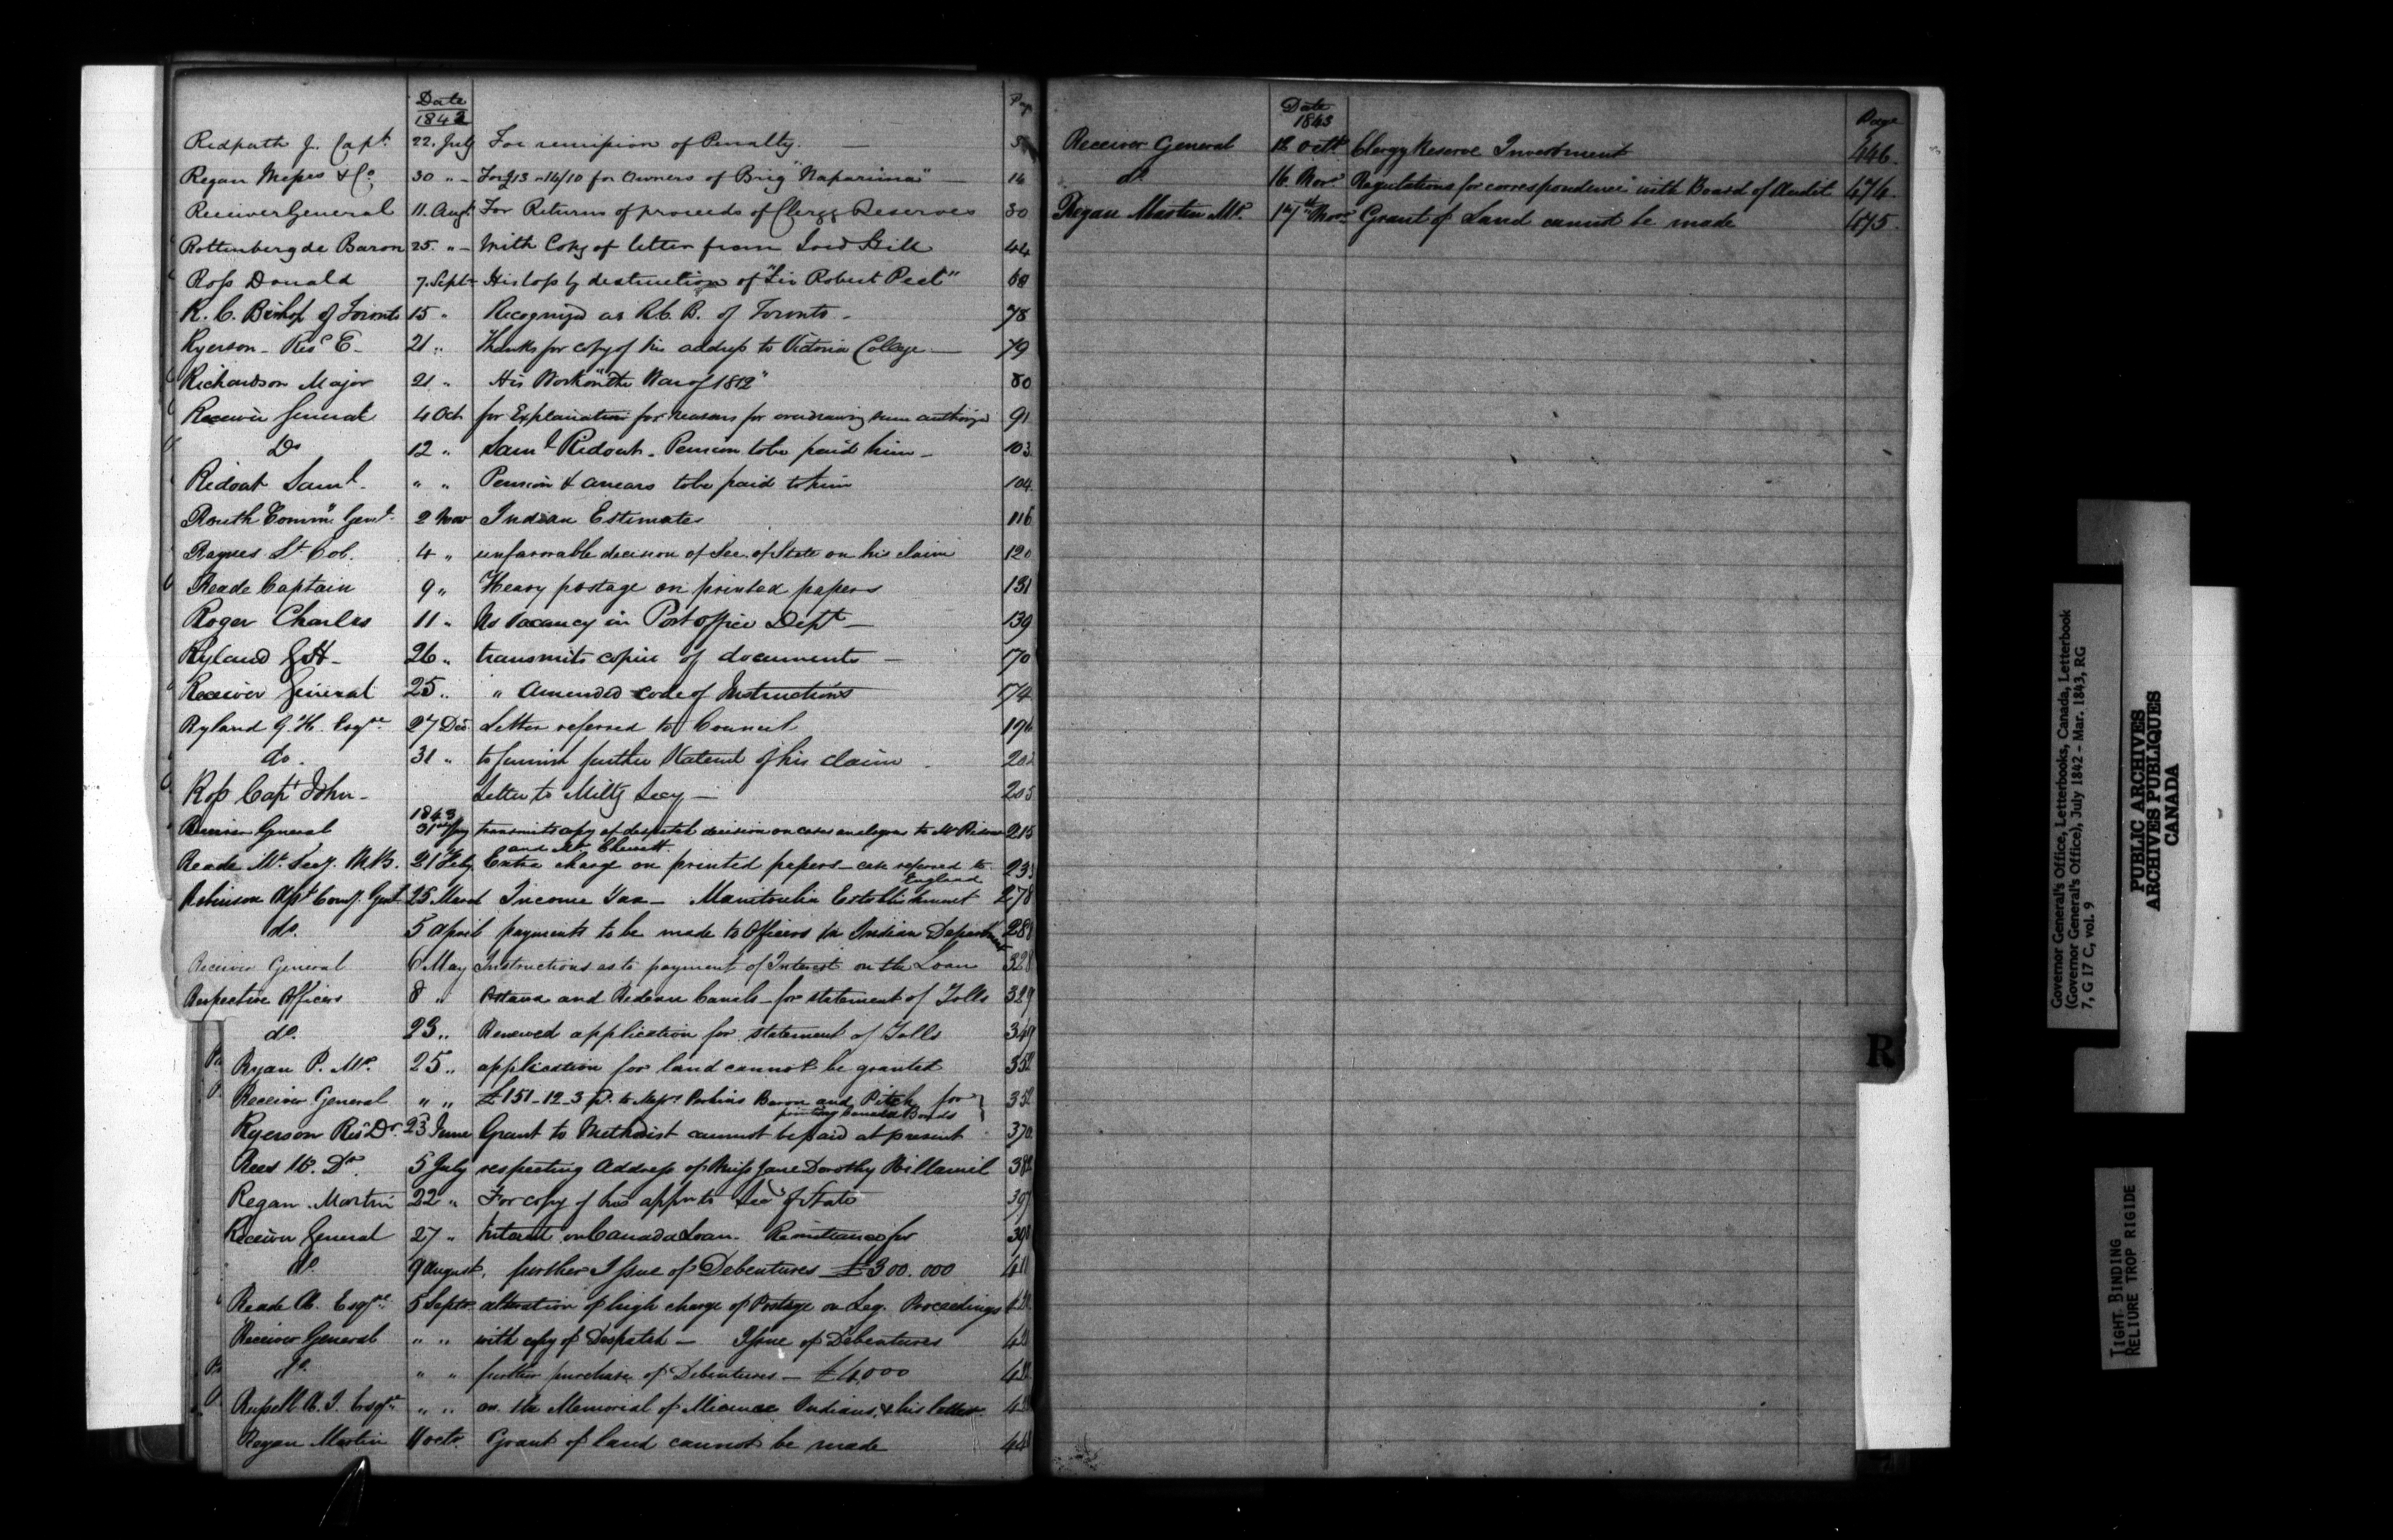 Date Page
1842
Redpath J. Capt. 22. July For remission of Penalty.
Regan Messrs & Co. 30 " For £13-14/10 for Owners of Brig "Naparima" 14
Receiver General 11. Augt. For Returns of proceeds of Clergy Reserves 30
Rottenberg de Baron 25. " With Copy of letter from Lord Hill 44
Ross Donald 7. Sept. His loss by destruction of "Sir Robert Peel"
R. C. Bishop of Toronto 15 " Recognized as R.C.B. of Toronto 78
Ryerson Revd E 21 " Thanks for copy of his address to Victoria College 79
Richardson Major 21 " His Work on "the War of 1812" 80
Receiver General 4 Oct for Explanation for reasons for overdrawing sum authorized 91
Do 12 " Saml Ridout. Pension to be paid him 103
Ridout Saml. " " Pension & arrears to be paid to him 104
Routh Commy Genl. 2 Nov Indian Estimates 116
Raynes Lt Col. 4 " unfavorable decision of Sec. of State on his claim 120
Reade Captain 9 " Heavy postage on printed papers 131
Roger Charles 11 " No Vacancy in Post office Dept 139
Ryland G H 26 " transmits copies of documents 170
Receiver General 25 " " Amended code of Instructions 174
Ryland G. H. Esqre 27 Dec Letter referred to Council 196
do. 31 " to furnish further Statemt of his claim
Ross Capt John Letter to Milty Secy 205
1843
Receiver General 31st Jany transmits copy of despatch decision on cases analogous to Mr Ridout 215
and Mr Chewett.
Reade Mr. Secy. 21 Feby Extra charge on printed papers case referred to
England
Robinson Asst Comy. Genl 25 March Income Tax Manitoulin Establishment 278
do. 5 April payments to be made to Officers in Indian Department 288
Receiver General 6 May Instructions as to payment of Interest on the Loan 328
Respective Officers 8 " Ottawa and Rideau Canals for statement of Tolls 329
do. 23 " Renewed application for statement of Tolls 349
Ryan P. Mr. 25 " application for land cannot be granted
Receiver General " " £151-12-3 pd. to Messrs Perkins Bacon and Petch for
printing Canada Bonds
Ryerson Revd Dr. 23 June Grant to Methodist cannot be paid at present 370
Rees W. Dr. 5 July respecting Address of Miss Jane Dorothy
Regan Martin 22 " For copy of his appn to Secy of State 397
Receiver General 27 " Interest on Canada Loan. Remittances for 398
do. 9 August. further Issue of Debentures £300.000
Reade Esqre. 5 Septr. alteration of high charge of Postage on Leg. Proceedings
Receiver General " " with copy of Despatch Issue of Debentures
do. " " further purchase of Debentures £4,000
Russell Esqre " " on the Memorial of Micmac Indians & his letter
Regan Martin 11 octr. Grant of land cannot be made
Date Page
1843
Receiver General 12 octr. Clergy Reserve Investment 446.
do 16 Novr. Regulations for correspondence with Board of Audit 474.
Regan Martin Mr. 17th Novr Grant of Land cannot be made 475.
R
Governor General's Office, Letterbooks, Canada, Letterbook
(Governor General's Office), July 1842 - Mar. 1843, RG
7, G 17 C, vol. 9
PUBLIC ARCHIVES
ARCHIVES PUBLIQUES
CANADA
TIGHT BINDING
RELIURE TROP RIGIDE